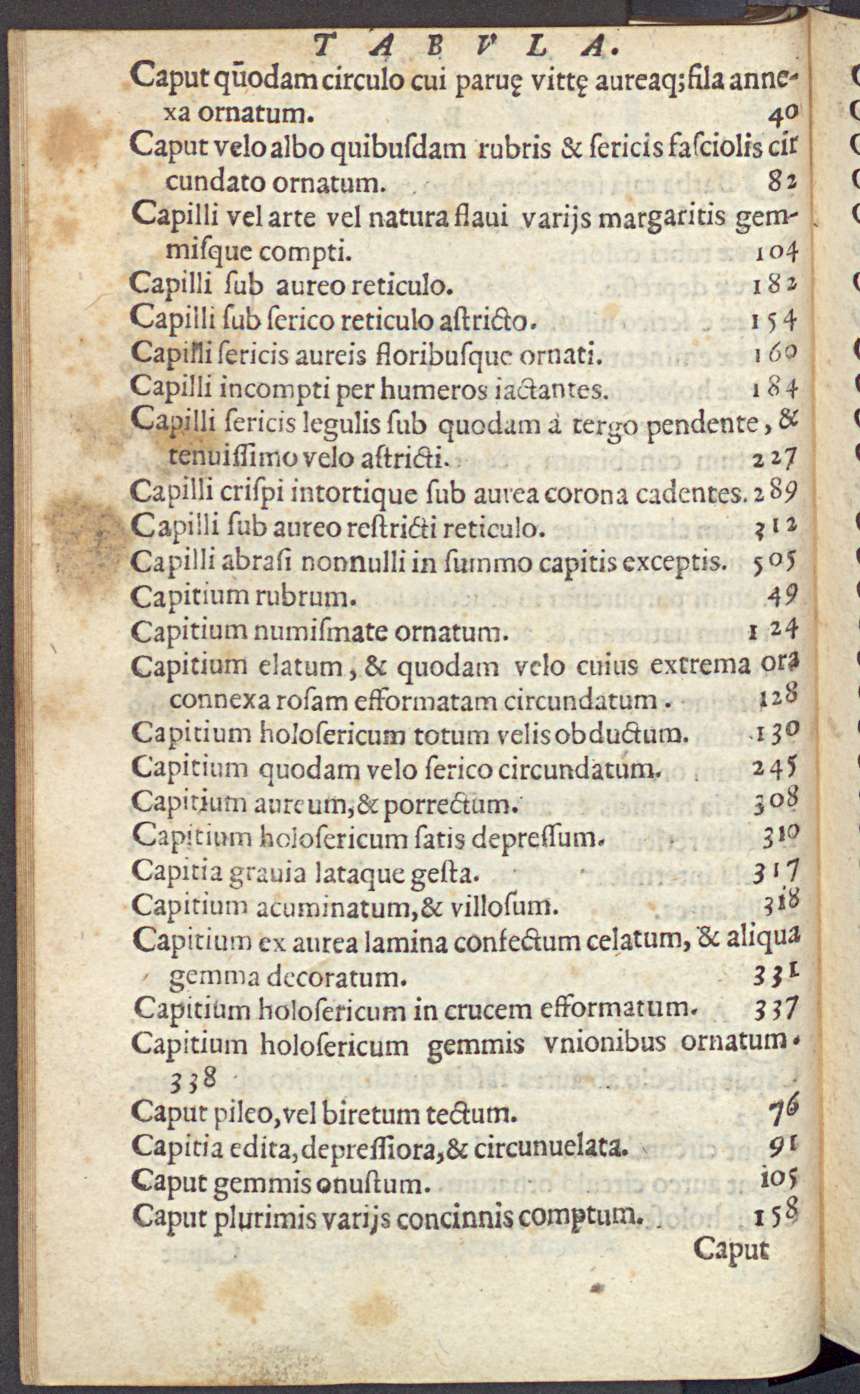 TABVLA.
Caput qūodam circulo cui paruę vittę aureaq; fila anne-
xa ornatum. 40
Caput velo albo quibuſdam rubris & ſericis faſciolis cir
cundato ornatum. 82
Capilli vel arte vel natura flaui varijs margaritis gem-
miſque compti. 104
Capilli ſub aureo reticulo. 182
Capilli ſub ſerico reticulo aſtricto. 154
Capilli ſericis aureis floribuſque ornati. 160
Capilli incompti per humeros iactantes. 184
Capilli ſericis legulis ſub quodam à tergo pendente, &
tenuiſſimo velo aſtricti. 227
Capilli criſpi intortique ſub aurea corona cadentes. 289
Capilli ſub aureo reſtricti reticulo. 312
Capilli abraſi nonnulli in ſummo capitis exceptis. 505
Capitium rubrum. 49
Capitium numiſmate ornatum. 124
Capitium elatum, & quodam velo cuius extrema ora
connexa roſam efformatam circundatum. 128
Capitium holoſericum totum velis obductum. 130
Capitium quodam velo ſerico circundatum. 245
Capitium aureum, & porrectum. 308
Capitium holoſericum ſatis depreſſum. 310
Capitia grauia lataque geſta. 317
Capitium acuminatum, & villoſum. 318
Capitium ex aurea lamina confectum celatum, & aliqua
gemma decoratum. 331
Capitium holoſericum in crucem efformatum. 337
Capitium holoſericum gemmis vnionibus ornatum.
338
Caput pileo, vel biretum tectum. 76
Capitia edita, depreſſiora, & circunuelata. 91
Caput gemmis onuſtum. 105
Caput plurimis varijs concinnis comptum. 158
Caput